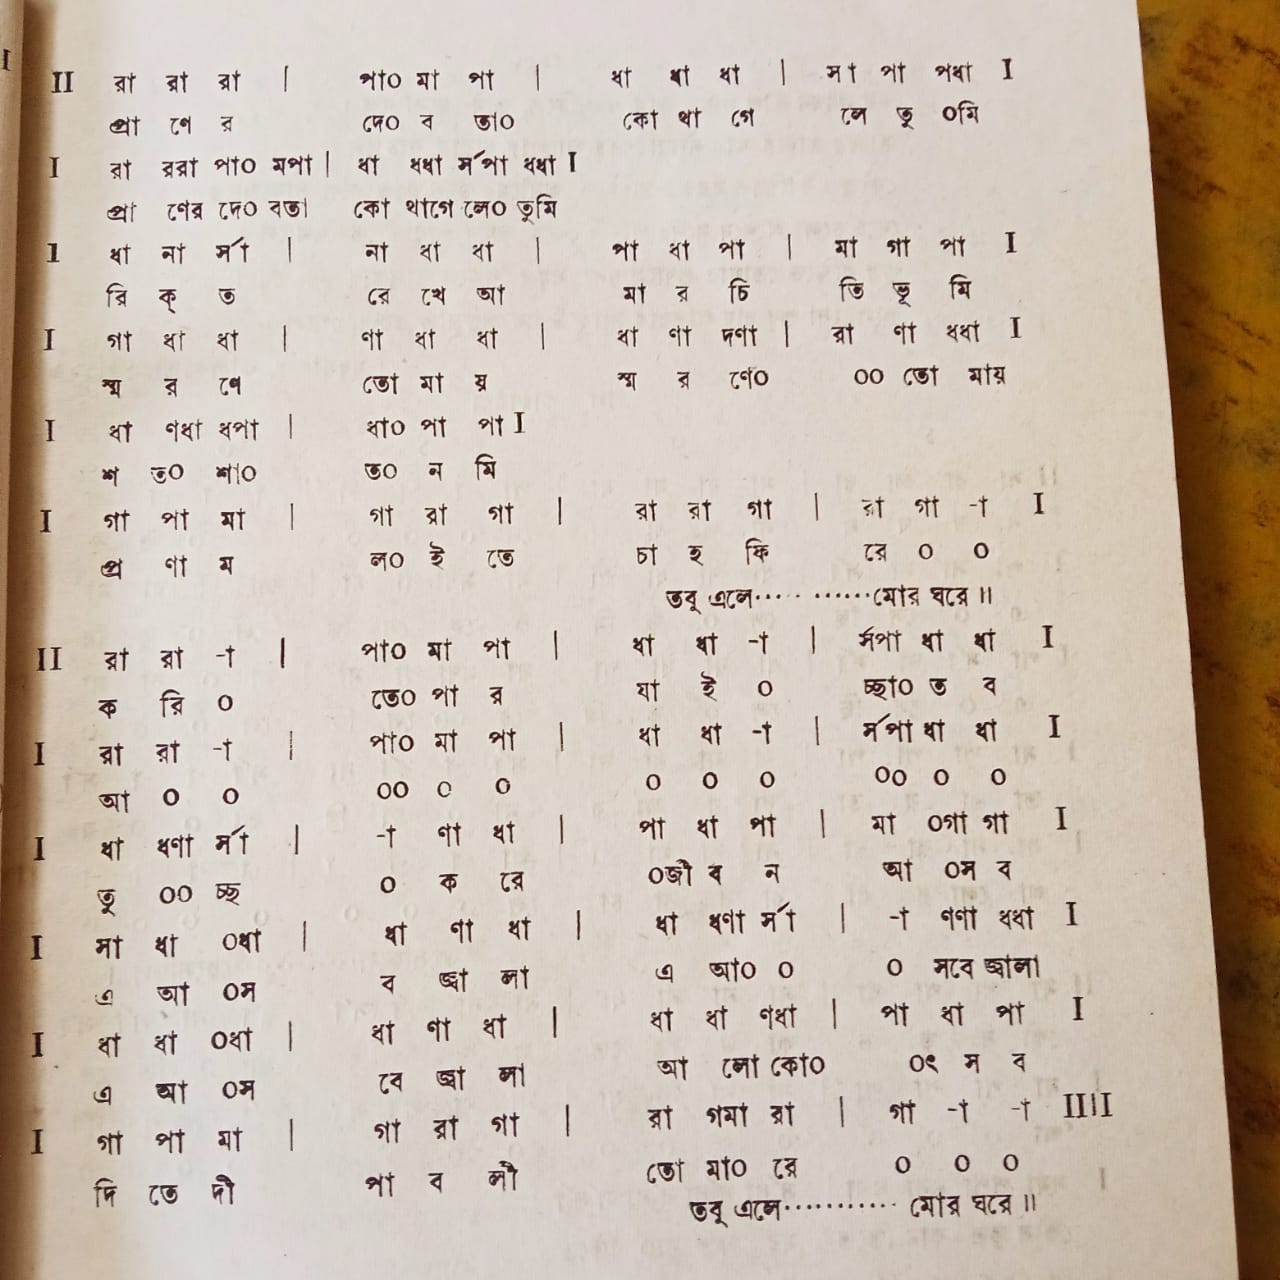 II রা রা রা | পা০ মা পা | ধা ধা ধা | মা পা পধা I
প্রা ণে র দে০ ব তা০ কো থা গে লে তু ০মি
I রা ররা পা০ মপা | ধা ধধা র্সপা ধধা I
প্রা ণের দে০ বতা কো থাগে লে০ তুমি
I ধা না র্সা | না ধা ধা | পা ধা পা | মা গা পা I
রি ক্ ত রে খে আ মা র চি তি ভূ মি
I গা ধা ধা | ণা ধা ধা | ধা ণা দণা | রা ণা ধধা I
স্ম র ণে তো মা য় স্ম র ণে০ ০০ তো মায়
I ধা ণধা ধপা | ধা০ পা পা I
শ ত০ শা০ ত০ ন মি
I গা পা মা | গা রা গা | রা রা গা | রা গা -া I
প্র ণা ম ল০ ই তে চা হ কি রে ০ ০
তবু এলে·············মোর ঘরে ॥
II রা রা -া | পা০ মা পা | ধা ধা -া | র্সপা ধা ধা I
ক রি ০ তে০ পা র যা ই ০ চ্ছা০ ত ব
I রা রা -া | পা০ মা পা | ধা ধা -া | র্সপা ধা ধা I
আ ০ ০ ০০ ০ ০ ০ ০ ০ ০০ ০ ০
I ধা ধণা র্সা | -া ণা ধা | পা ধা পা | মা ০গা গা I
তু ০০ চ্ছ ০ ক রে ০জী ব ন আ ০স ব
I মা ধা ০ধা | ধা ণা ধা | ধা ধণা র্সা | -া ণণা ধধা I
এ আ ০স ব জ্বা লা এ আ০ ০ ০ সবে জ্বালা
I ধা ধা ০ধা | ধা ণা ধা | ধা ধা ণধা | পা ধা পা I
এ আ ০স বে জ্বা লা আ লো কো০ ০ৎ স ব
I গা পা মা | গা রা গা | রা গমা রা | গা -া -া IIII
দি তে দী পা ব লী তো মা০ রে ০ ০ ০
তবু এলে··········· মোর ঘরে ॥